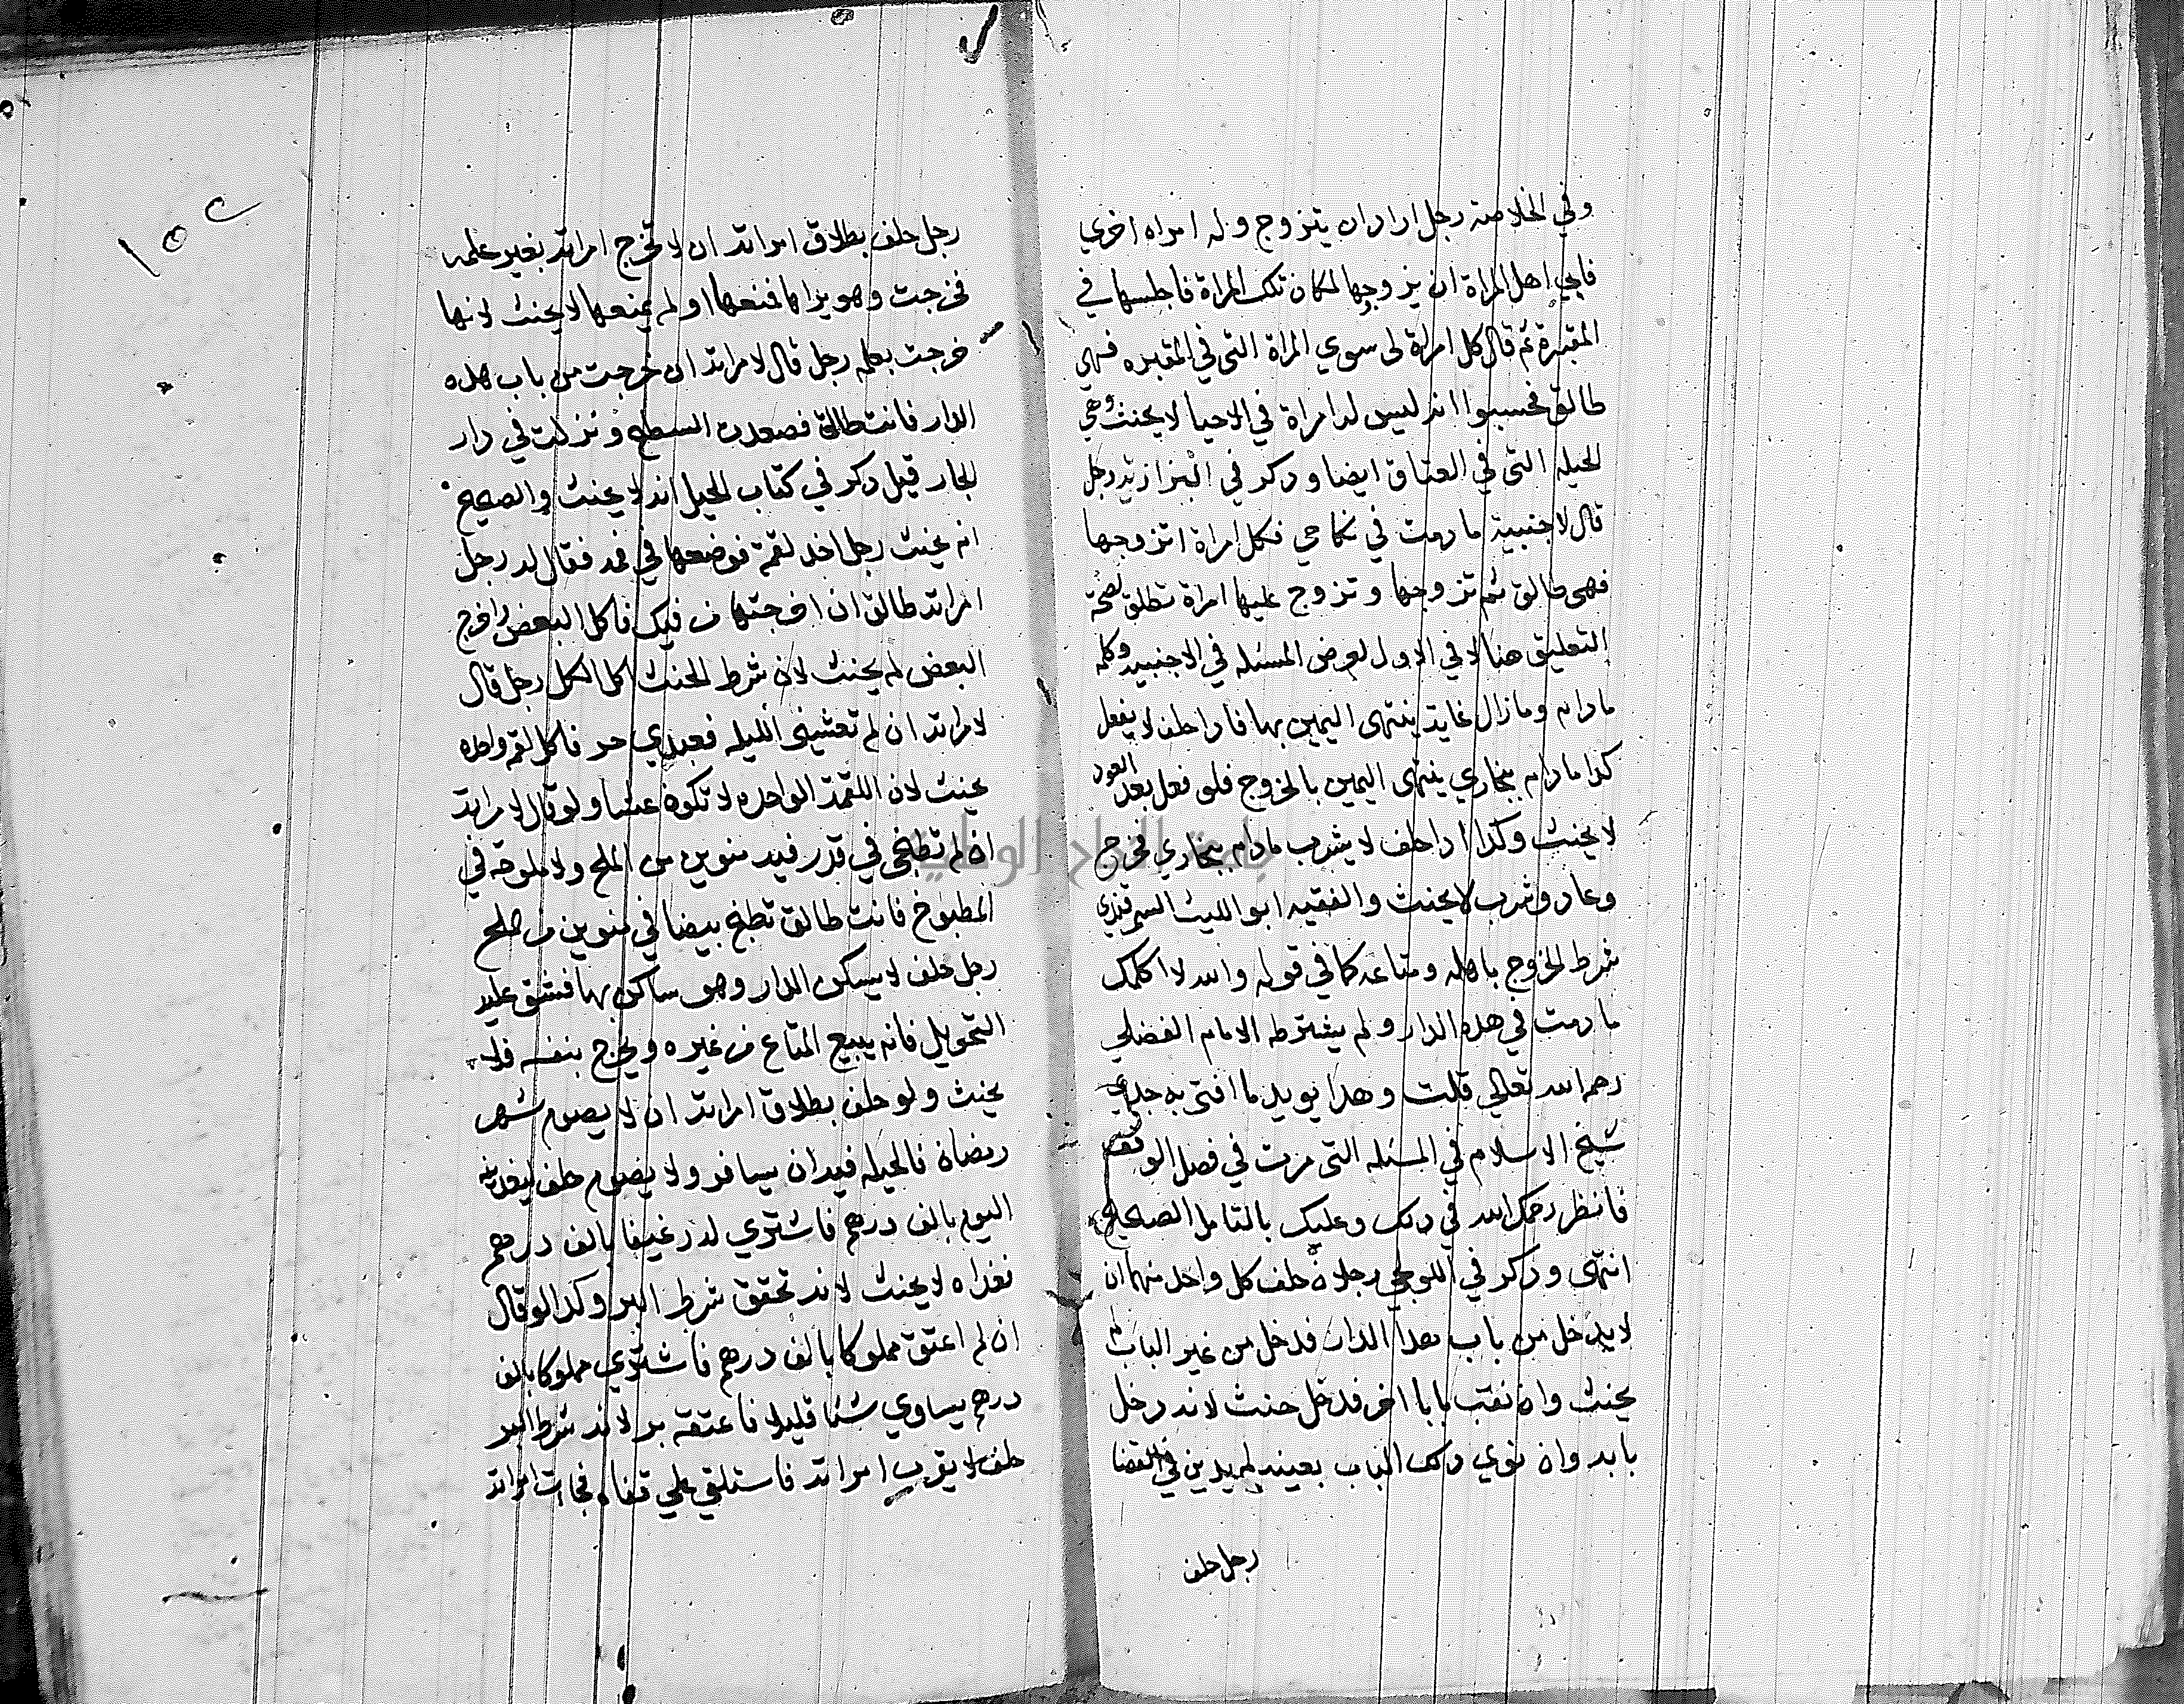 وفي الخلاصة رجل اراد ان يتزوج وله امراه اخري
فابي اهل المراة ان يزوجها لمكان تلك المراة فاجلسها في
المقبرة ثم قال كل امراة لى سوي المراة التى في المقبره فهي
طالق فحسبوا انه ليس له امراة في الاحيا لا يحنث وهي
الحيله التى في العتاق ايضا وذكر في البزازيه رجل
قال لاجنبية ما دمت في نكاحي فكل امراة اتزوجها
فهى طالق ثم تزوجها وتزوج عليها امراة تطلق لصحة
التعليق هنا لا في الاول لعرض المسئله في الاجنبيه وكلمه
مادام ومازال غاية ينتهى اليمين بها فاذا حلف لا يفعل
كذا مادام ببخاري ينتهى اليمين بالخروج فلو فعل بعد العود
لا يحنث وكذا اذا حلف لا يشرب مادام ببخاري فخرج
وعاد وشرب لا يحنث والفقيه ابو الليث السمرقندي
شرط الخروج باهله ومتاعه كما في قوله والله لا اكلمك
ما دمت في هذه الدار ولم يشترط الامام الفضلي
رحمه الله تعالي قلت وهذا يويد ما افتى به جدي
شيخ الاسلام في المسئله التى مرت في فصل الوقف
فانظر رحمك الله في ذلك وعليك بالتامل الصحيح
انتهى وذكر في الولوالجي رجلان حلف كل واحد منهما ان
لا يدخل من باب هذا الدار فدخل من غير الباب لم
يحنث وان نقب بابا اخر فدخل حنث لانه دخل
بابه وان نوي ذلك الباب بعينه لم يدين في القضا
رجل حلف
١٥٢
رجل حلف بطلاق امراته ان لا تخرج امراته بغير علمه
فخرجت وهو يراها فمنعها او لم يمنعها لا يحنث لانها
خرجت بعلمه رجل قال لامراته ان خرجت من باب هذه
الدار فانت طالق فصعدت السطح ونزلت في دار
الجار قيل ذكر في كتاب الحيل انه لا يحنث والصحيح
انه يحنث رجل اخذ لقمة فوضعها في فمه فقال له رجل
امراته طالق ان اخرجتها من فيك فاكل البعض واخرج
البعض لم يحنث لان شرط الحنث اكل الكل رجل قال
لامراته ان لم تعشينى الليله فعبدي حر فاكل لقمه واحده
يحنث لان اللقمة الواحده لا تكون عشا ولو قال لامراته
ان لم تطبخي في قدر فيه منوين من الملح ولا ملوحة في
المطبوخ فانت طالق تطبخ بيضا في منوين من ملح
رجل حلف لا يسكن الدار وهو ساكن بها فشق عليه
التحويل فانه يبيع المتاع من غيره ويخرج بنفسه فلا
يحنث ولو حلف بطلاق امراته ان لا يصوم شهر
رمضان فالحيله فيه ان يسافر ولا يصوم حلف ليغدينه
اليوم بالف درهم فاشتري له رغيفا بالف درهم
فغداه لا يحنث لانه تحقق شرط البر وكذا لو قال
ان لم اعتق مملوكا بالف درهم فاشتري مملوكا بالف
درهم يساوي شيا قليلا فاعتقه بر لانه شرط البر
حلف لا يقرب امراته فاستلقي علي قفاه فجات امراته
جامعة النجاح الوطنية